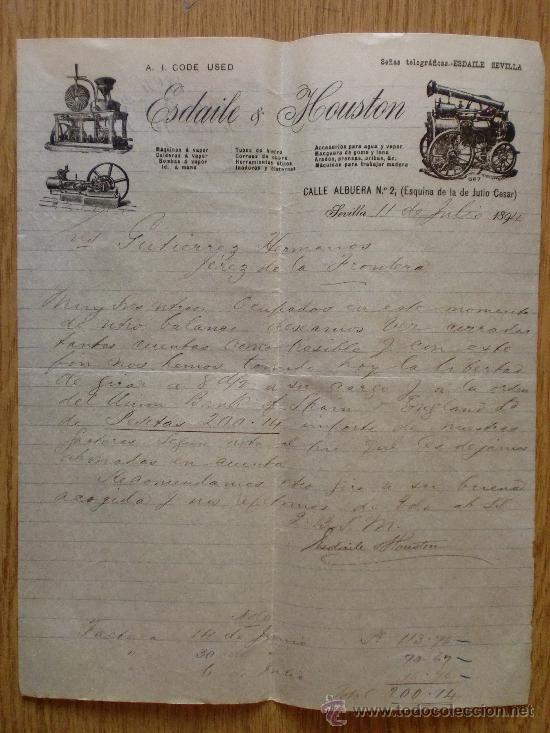 A. I. CODE USED
Señas telegráficas.-ESDAILE SEVILLA
Esdaile & Houston
Máquinas á vapor
Calderas á vapor
Bombas á vapor
Id. á mano
Tubos de hierro
Correas de cuero
Herramientas útiles
Inodoros y cisternas
Accesorios para agua y vapor.
Manguera de goma y lona
Arados, prensas, cribas, &c.
Máquinas para trabajar madera
CALLE ALBUERA N.º 2, (Esquina de la de Julio Cesar)
Sevilla 11 de Julio 1894
Gutierrez Hermanos
Jerez de la Frontera
Muy Sres ntros: Ocupados en este momento
de ntro balance deseamos ver cerradas
tantas cuentas como posible y con este
fin nos hemos tomado hoy la libertad
de girar a 8 d/v a su cargo y a la orden
del Union Bank of Spain & England Ld
de Pesetas 200.14 importe de nuestras
facturas segun nota al pie que les dejamos
abonadas en cuenta
Recomendamos ntro giro a su buena
acogida y nos repetimos de Vds af SS
Q B S M.
Esdaile & Houston
Nota
Factura 14 de Junio
" 30 de "
" 6 " Julio
Pt 113.75
70.69
Total 200.14
www.todocoleccion.net